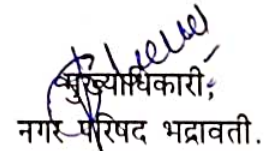 मुख्याधिकारी,
नगर परिषद भद्रावती.